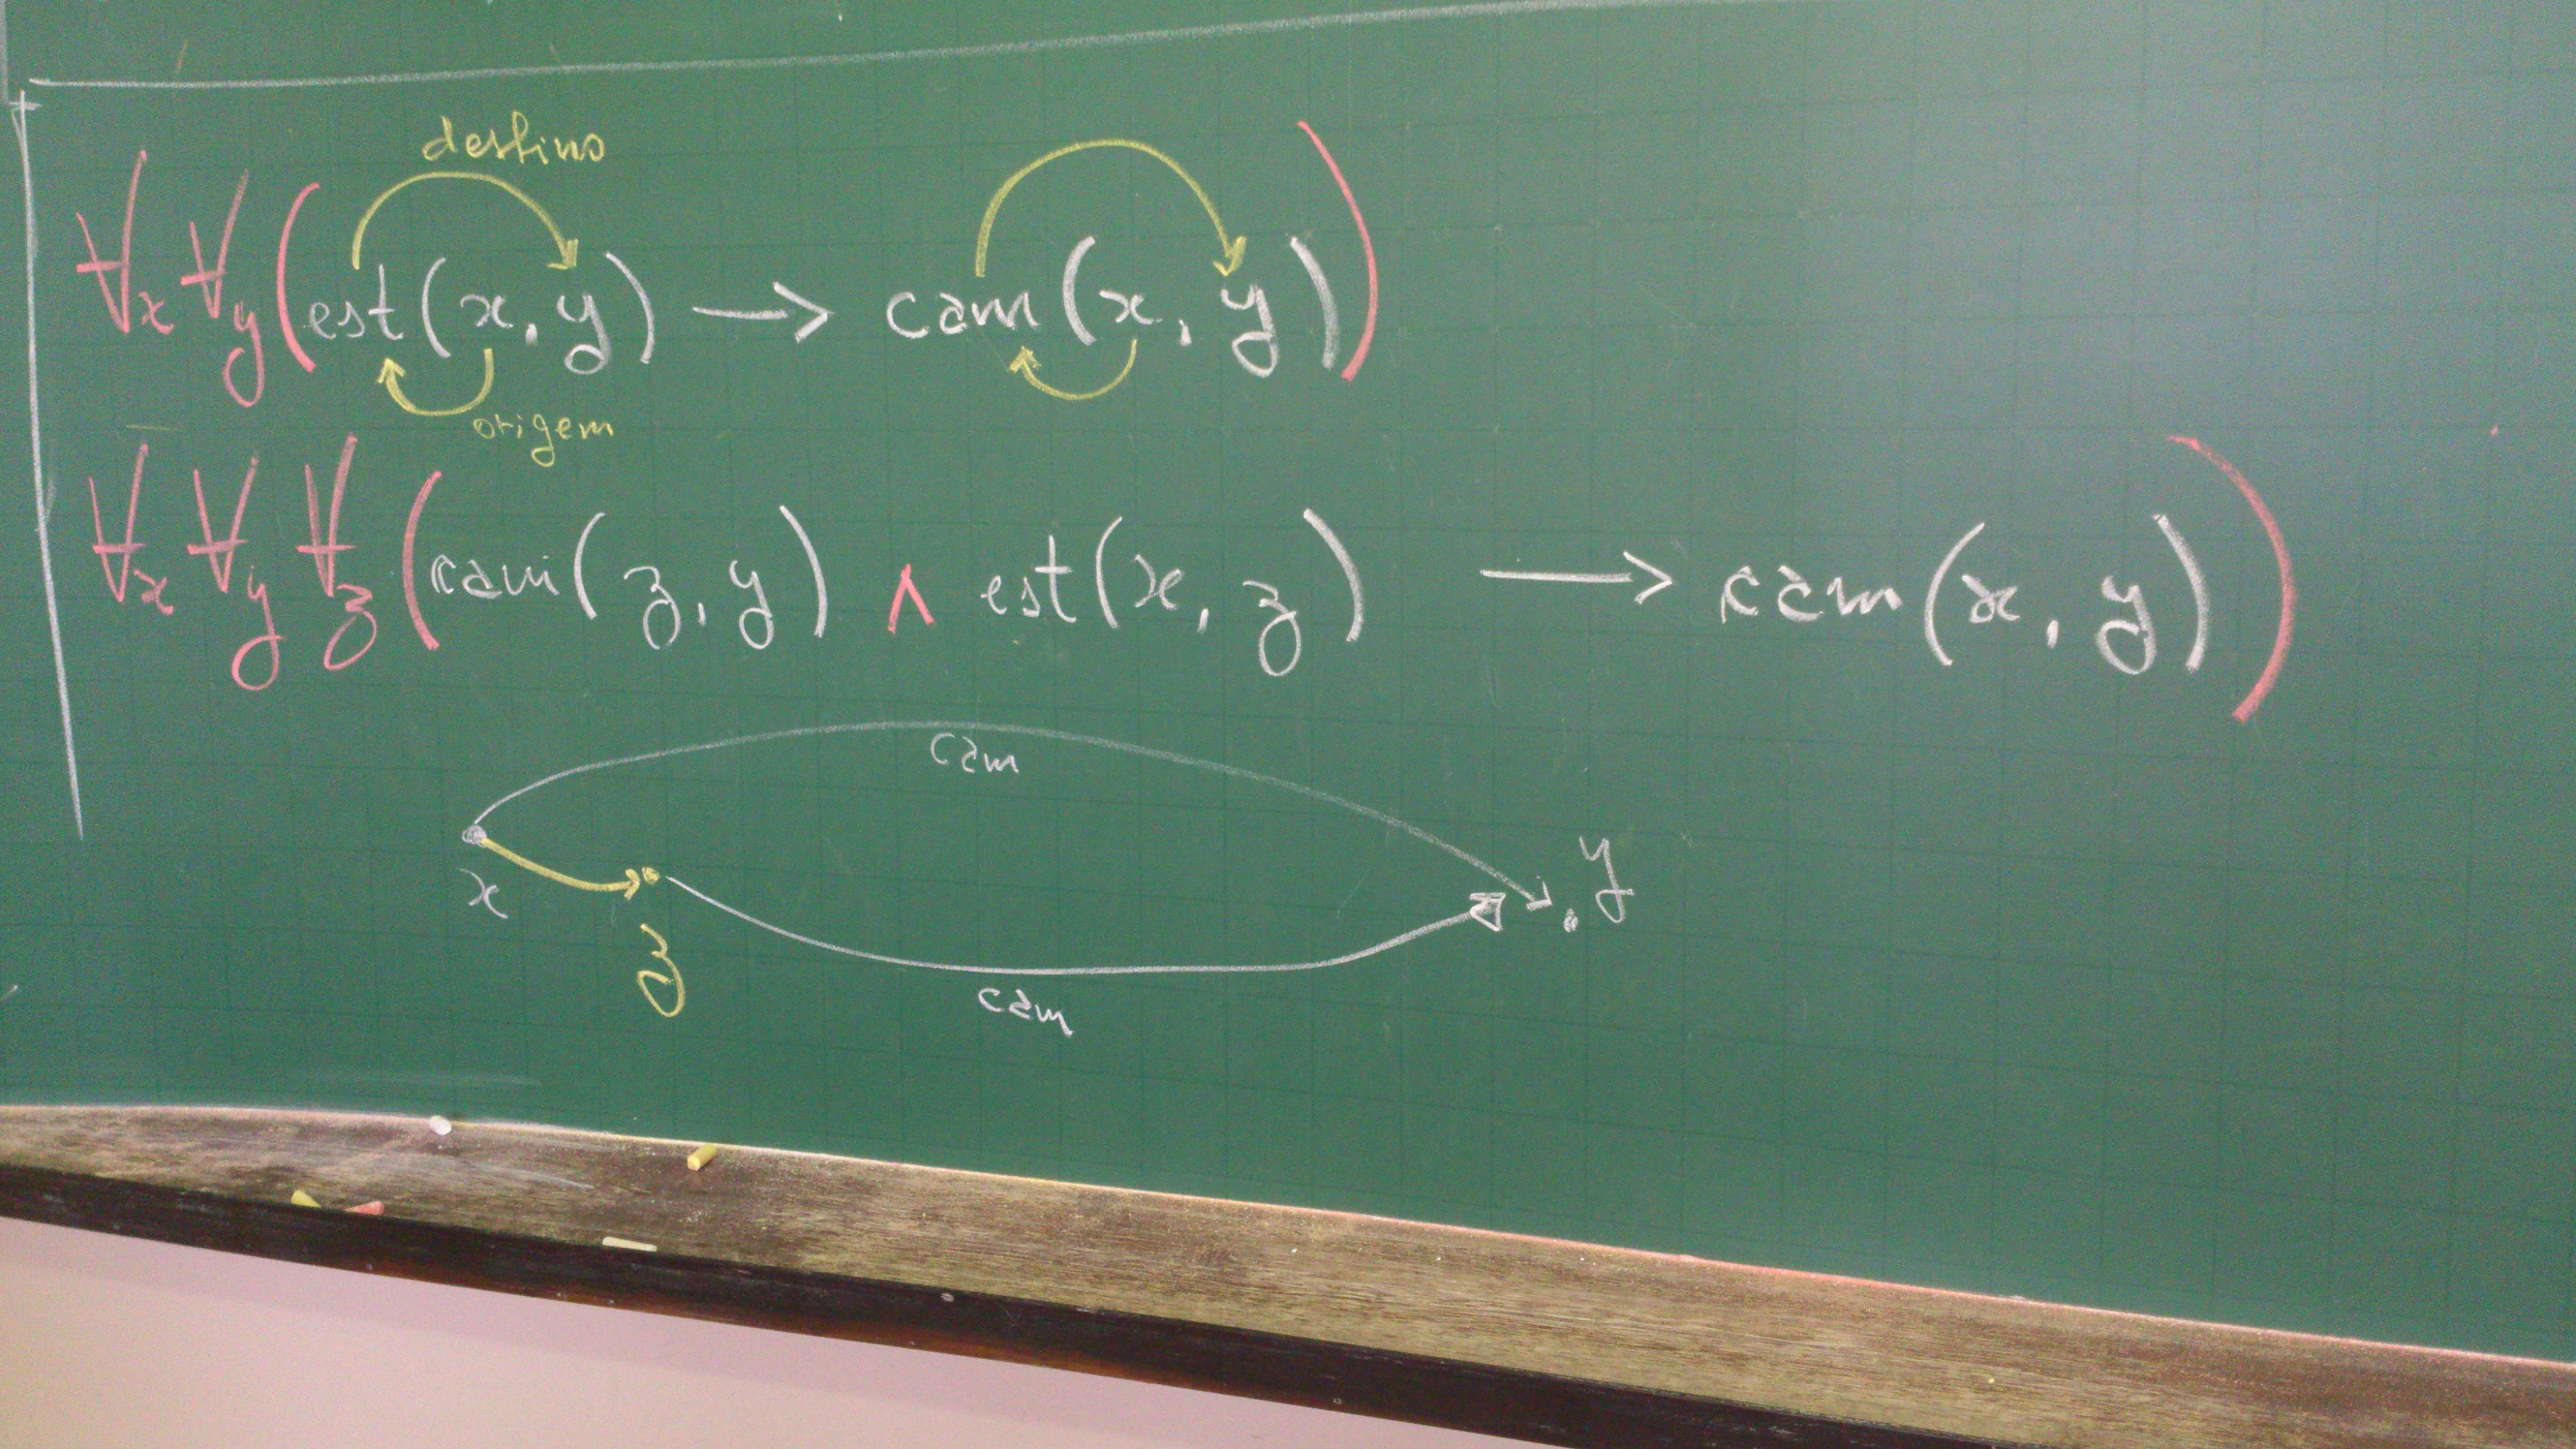 destino
∀x ∀y (est(x, y) → cam(x, y))
origem
∀x ∀y ∀z (cam(z, y) ∧ est(x, z) → cam(x, y))
cam
x z y
cam